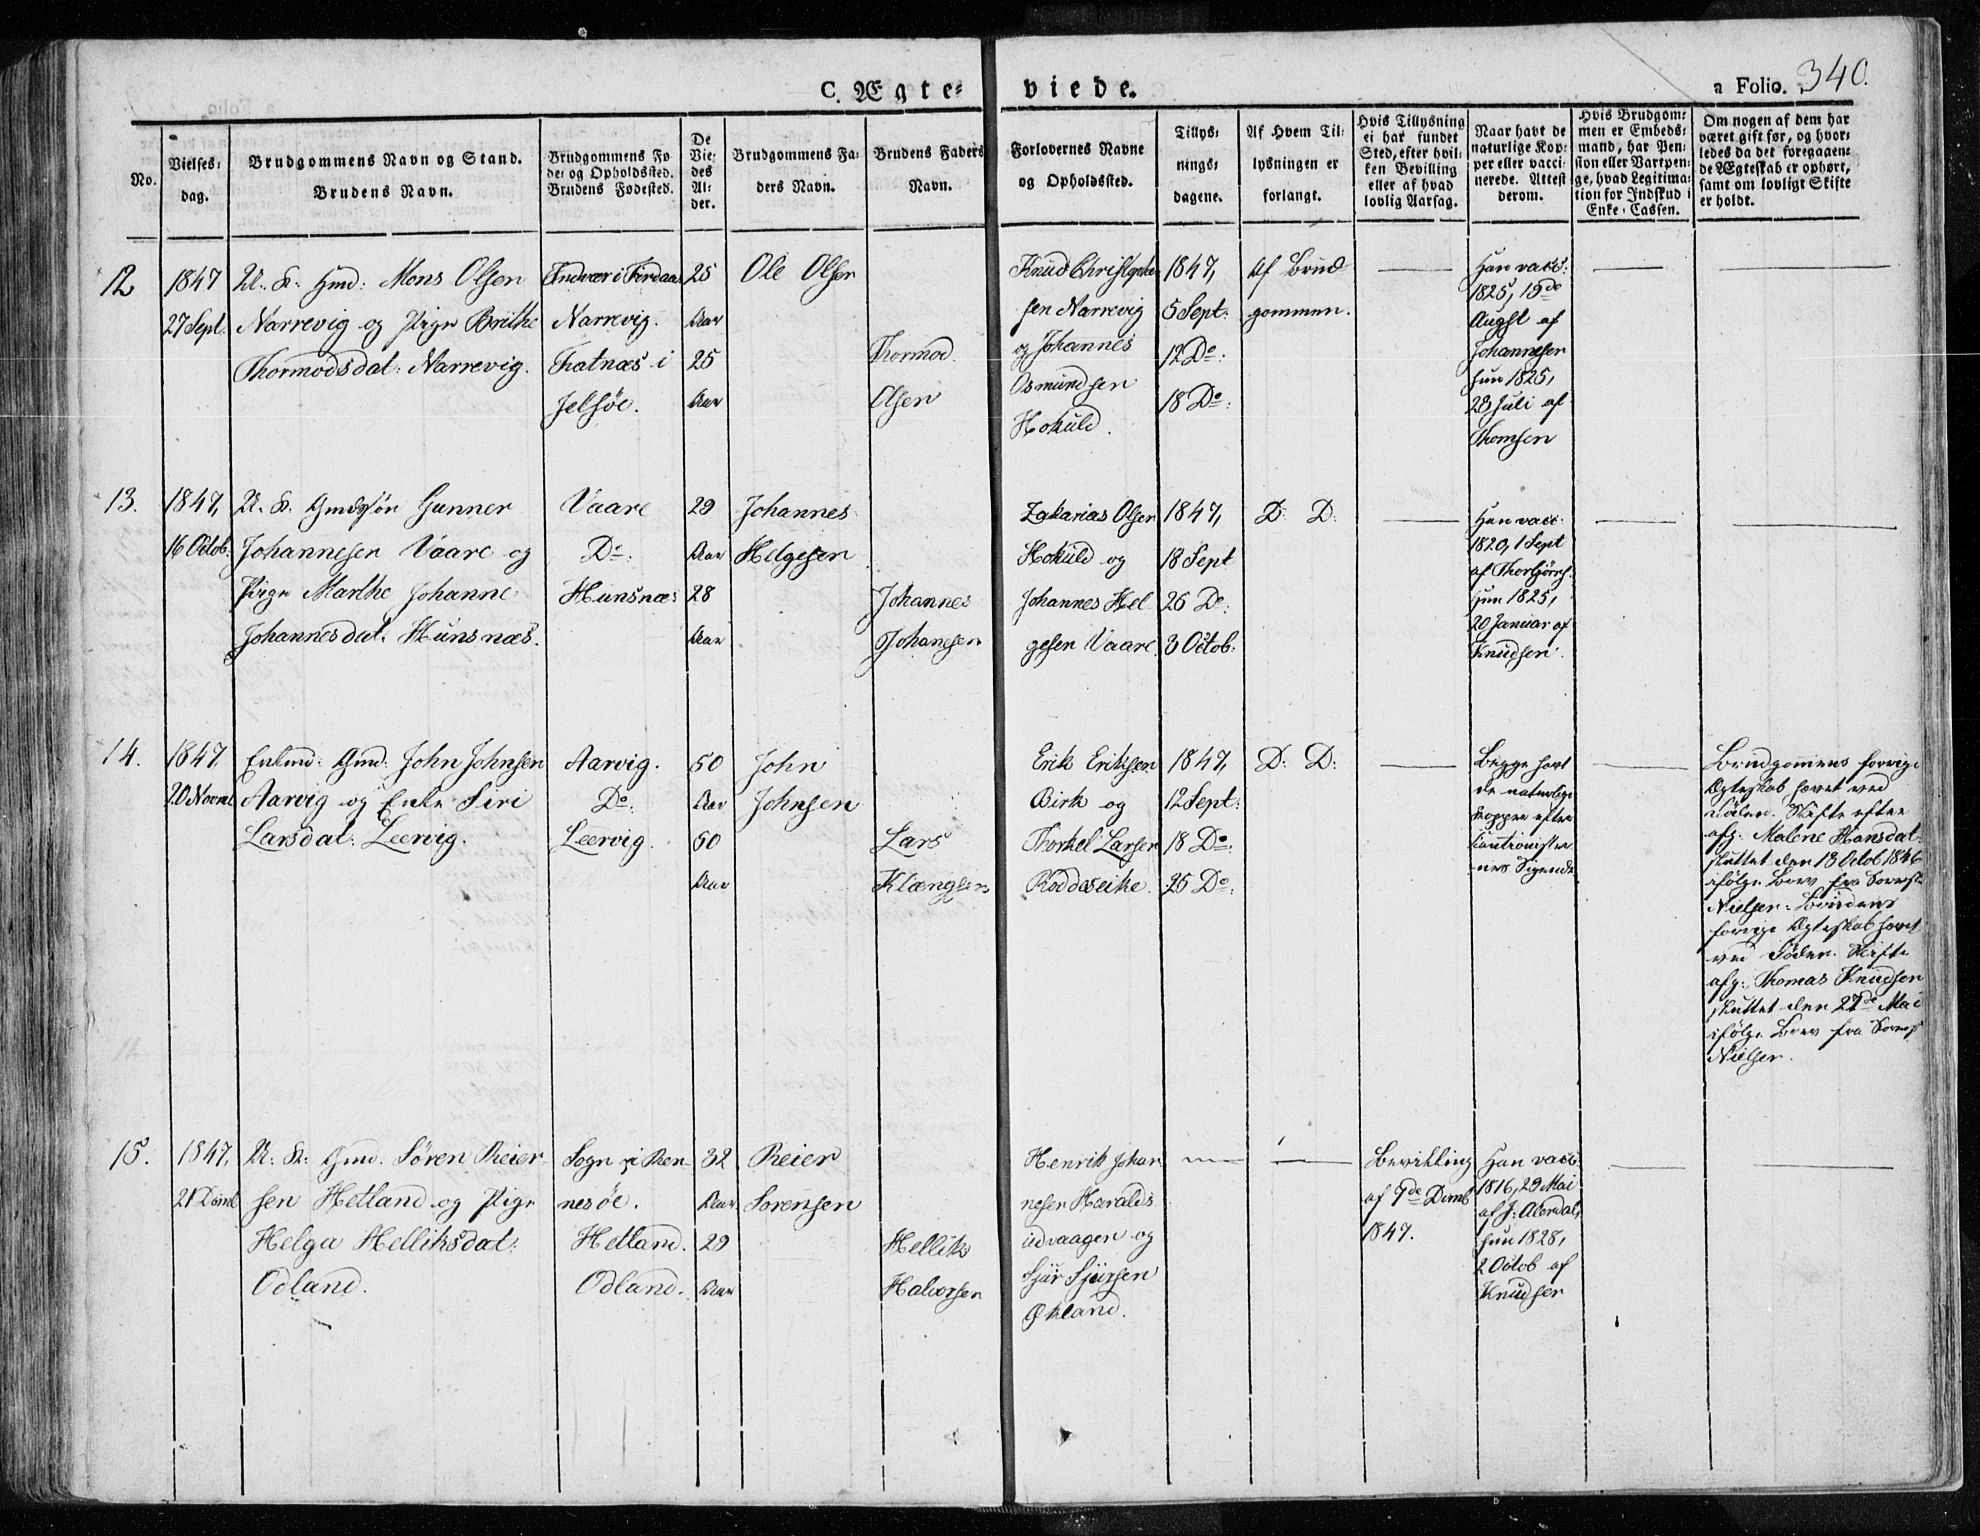 C. Ægte=
viede.
a Folio. 340.
No.
Vielses=
dag.
Brudgommens Navn og Stand.
Brudens Navn.
Brudgommens Fø
de= og Opholdssted.
Brudens Fødested.
De
Vie=
des
Al=
der.
Brudgommens Fa=
ders Navn.
Brudens Faders
Navn.
Forlovernes Navne
og Opholdssted.
Tillys=
nings=
dagene.
Af Hvem Til=
lysningen er
forlangt.
Hvis Tillysning
ei har fundet
Sted, efter hvil=
ken Bevilling
eller af hvad
lovlig Aarsag.
Naar havt de
naturlige Kop=
per eller vacci=
nerede. Attest
derom.
Hvis Brudgom=
men er Embeds=
mand, har Pen=
sion eller Vartpen=
ge, hvad Legitima=
tion for Indskud i
Enke=Cassen.
Om nogen af dem har
været gift før, og hvor=
ledes da det foregaaen=
de Ægteskab er ophørt,
samt om lovligt Skifte
er holdt.
12
1847
27 Sept.
U. K. Gmd: Mons Olsen
Narrevig og Pige Brithe
Thormodsdat: Narrevig.
Indvær i Findaas
Narrevig.
Tratnæs i
Jelsöe.
25
Aar
25
Aar
Ole Olsen
Thormod
Olsen
Knud Christophe
sen Narrevig
og Johannes
Osmundsen
Hokuld.
1847,
5 Sept:
12 Do:
18 Do:
Af Brud
gommen.
Han vacc:
1825, 15de
Augst af
Johannesen
hun 1825,
28 Juli af
Thomsen
13.
1847,
16 Octob:
U. K. Gmdssön Gunner
Johannesen Vaare og
Pige Marthe Johanne
Johannesdat. Hunsnæs.
Vaare
Do:
Hunsnæs
29
Aar
28
Aar
Johannes
Helgesen
Johannes
Johanesen
Zakarias Olsen
Hokuld og
Johannes Hel
gesen Vaare.
1847,
18 Sept
26 Do:
3 Octob:
D: D:
Han vacc:
1820, 1 Sept
af Thorbjörns.
hun 1825,
20 Januar af
Knudsen.
14.
1847
20 Novmb
Enkmd: Gmd: John Johnsen
Aarvig og Enke Siri
Larsdat: Leervig.
Aarvig.
Do:
Leervig.
50
Aar
50
Aar
John
Johnsen
Lars
Klængsen
Erik Eriksen
Birk og
Thorkel Larsen
Roddeseike.
1847,
12 Sept:
18 Do:
25 Do:
D: D:
Begge havt
de naturlige
Kopper efter
Cautioniste
nes Sigende
Brudgomens forrige
Ægteskab hævet ved
Döden. Skifte efter
afg: Malene Hansdat
sluttet den 13 Octob 1846
ifölge Brev fra Sorensk
Nielsen. Brudens
forrige Ægteskab hævet
ved Döden. Skifte
afg: Thomas Knudsen
sluttet den 27de Mai
ifölge Brev fra Sorensk
Nielsen.
15.
1847,
21 Decmb
U: K: Gmd. Sören Reier
sen Hetland og Pige
Helga Helliksdat:
Odland.
Sogn i Ren
nesöe.
Hetland.
Odland.
32
Aar
29
Aar
Reier
Sorensen
Hellik
Halvorsen
Henrik Johan
nesen Haralds
eidvaagen og
Sjur Sjursen
Økland.
Bevilling
af 7de Decmb
1847.
Han vacc:
1816, 29 Mai
hun 1828,
2 Octob af
Knudsen